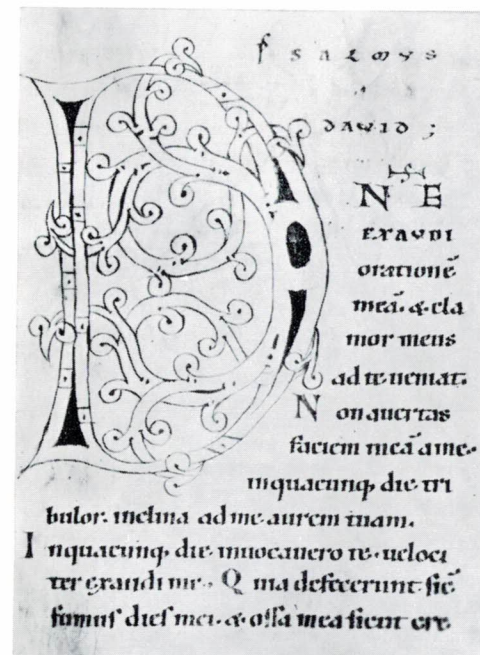 PSALMVS
DAVID;
D NE
EXAVDI
orationē
meā. & cla
mor meus
ad te ueniat.
Non auertas
faciem meā a me.
inquacunq; die tri
bulor. inclina ad me aurem tuam.
Inquacunq; die inuocauero te. ueloci
ter exaudi me. Quia defecerunt sic̄
fumuſ dieſ mei. & oſſa mea ſicut cre